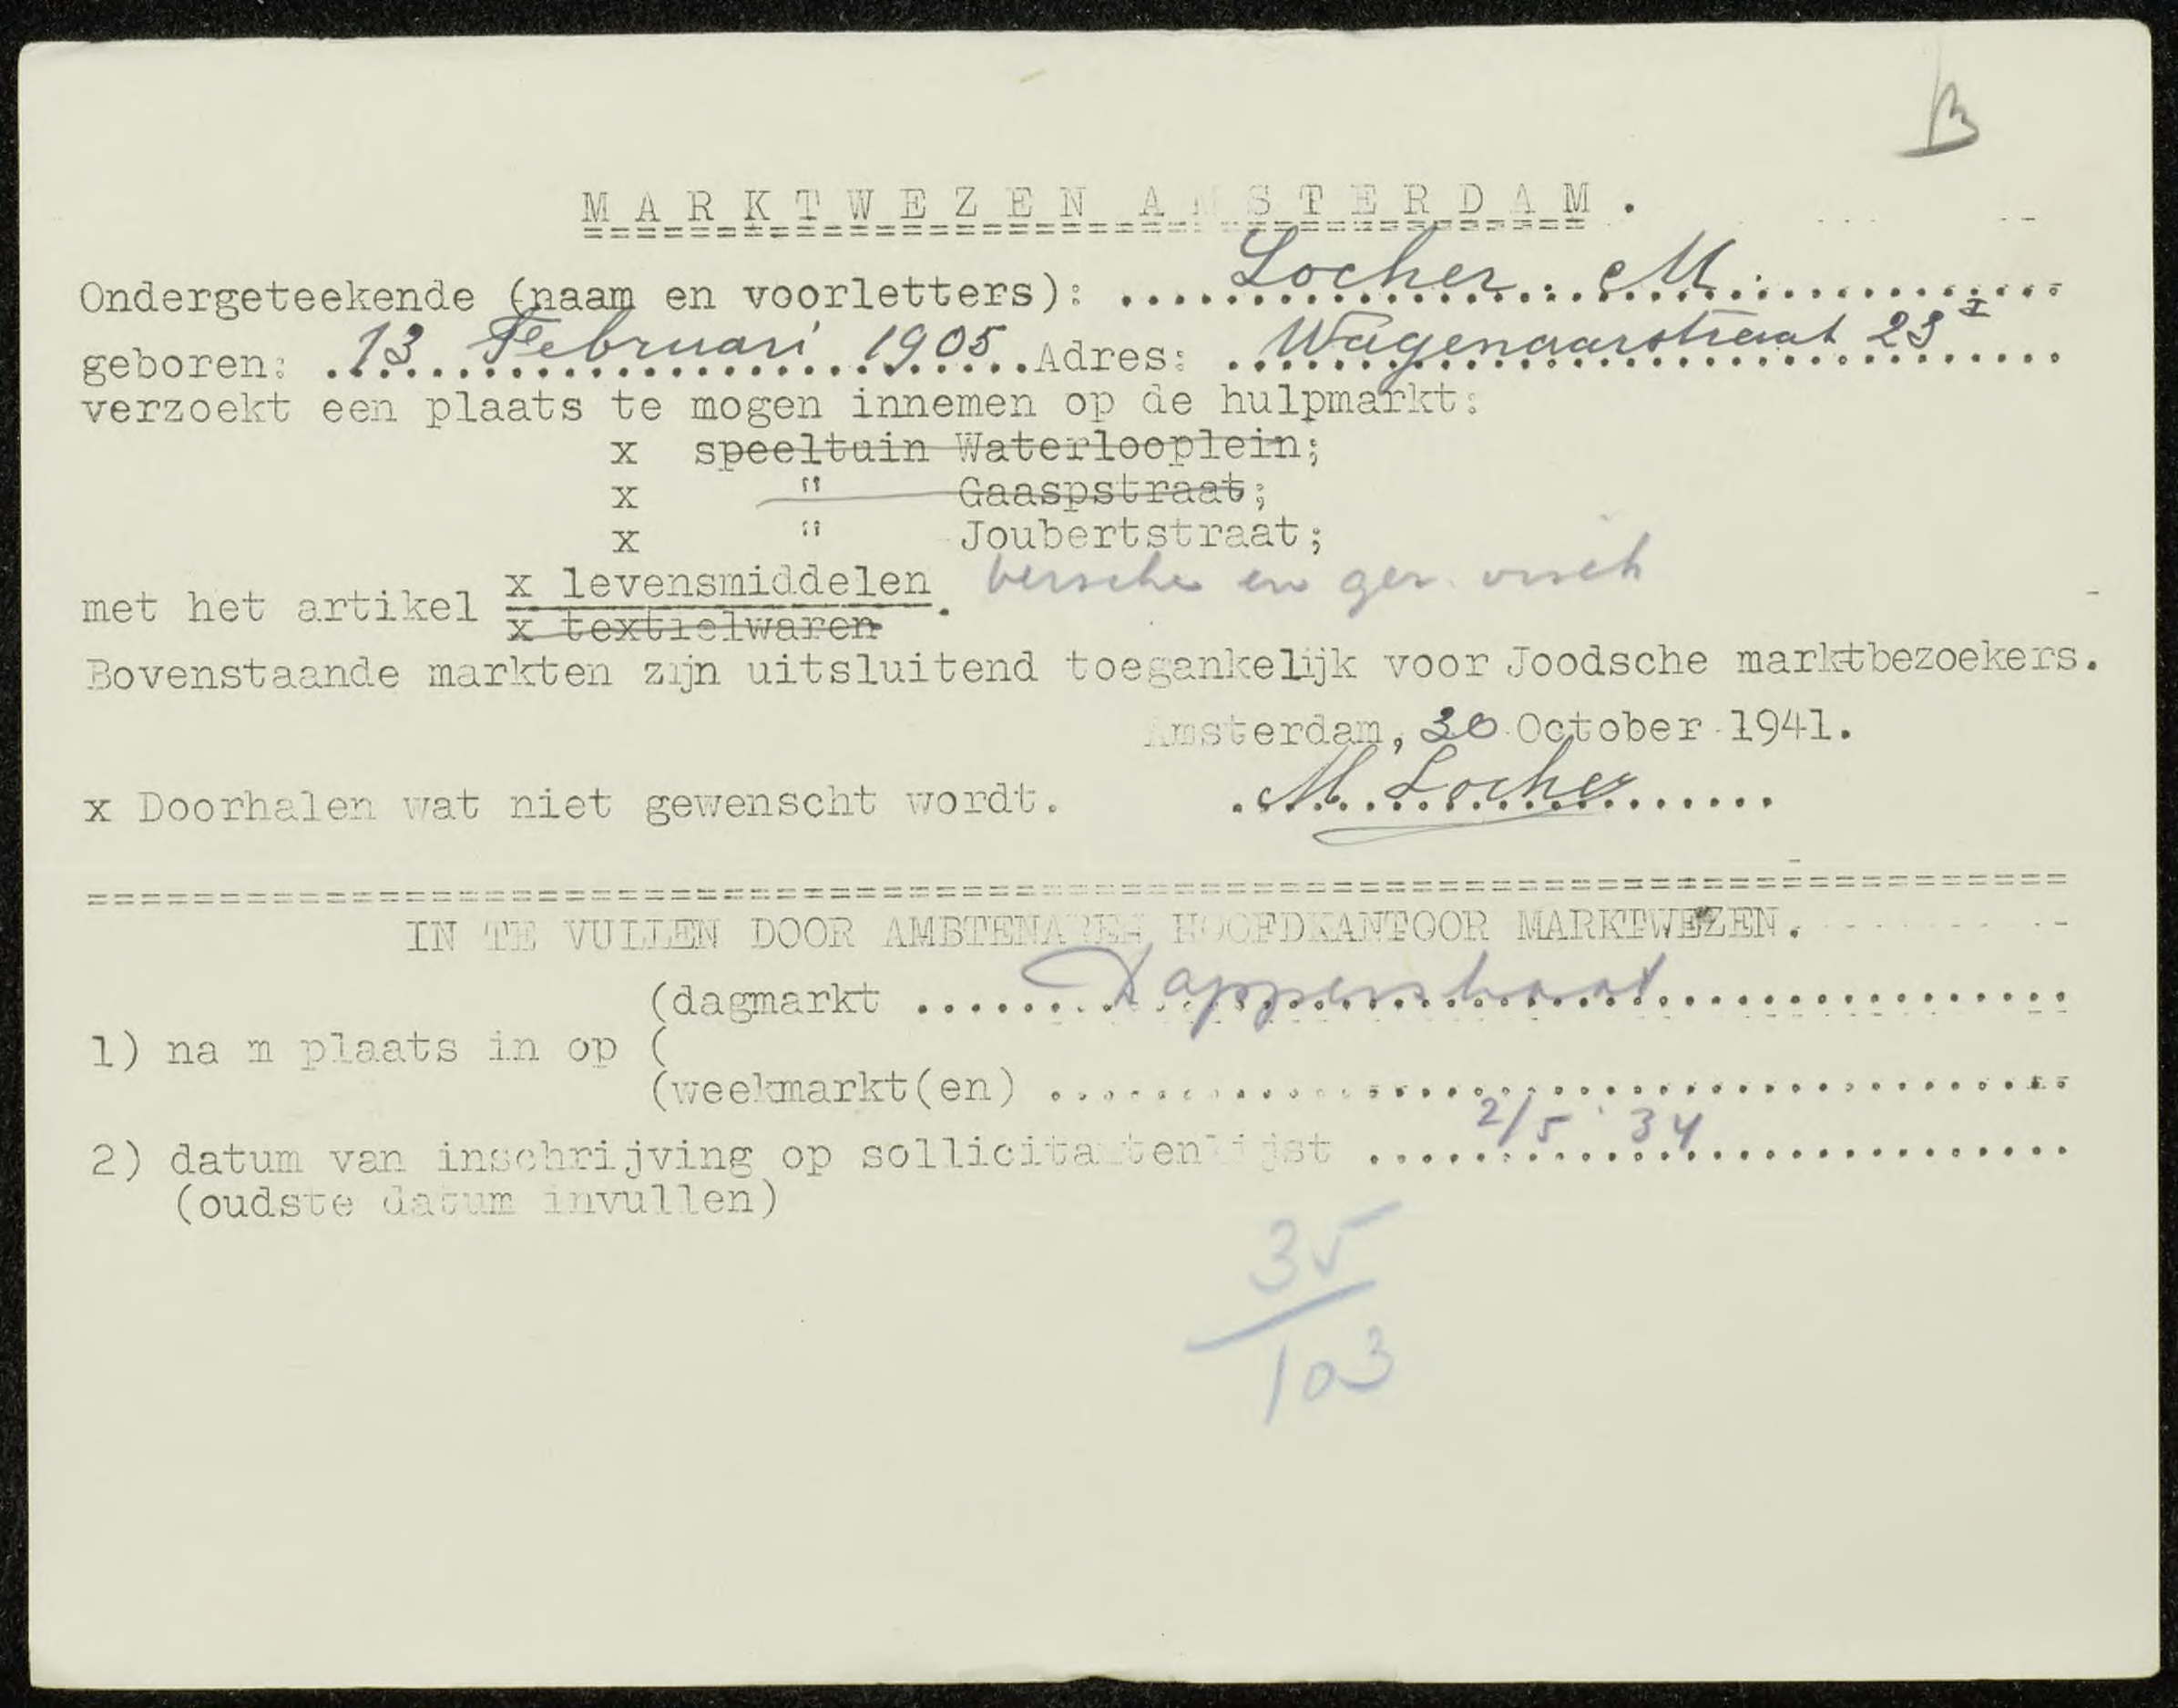 B
MARKTWEZEN AMSTERDAM.
Ondergeteekende (naam en voorletters): Locher. M.
geboren: 13 Februari 1905 Adres: Wagenaarstraat 23 I
verzoekt een plaats te mogen innemen op de hulpmarkt:
x speeltuin Waterlooplein;
x " Gaaspstraat;
x " Joubertstraat;
x levensmiddelen versche en ger. visch
met het artikel .
x textielwaren
Bovenstaande markten zijn uitsluitend toegankelijk voor Joodsche marktbezoekers.
Amsterdam, 30 October 1941.
x Doorhalen wat niet gewenscht wordt. M. Locher
IN TE VULLEN DOOR AMBTENAREN HOOFDKANTOOR MARKTWEZEN.
(dagmarkt Dapperstraat
1) na m plaats in op (
(weekmarkt(en)
2) datum van inschrijving op sollicitantenlijst 2/5 '34
(oudste datum invullen)
35
103